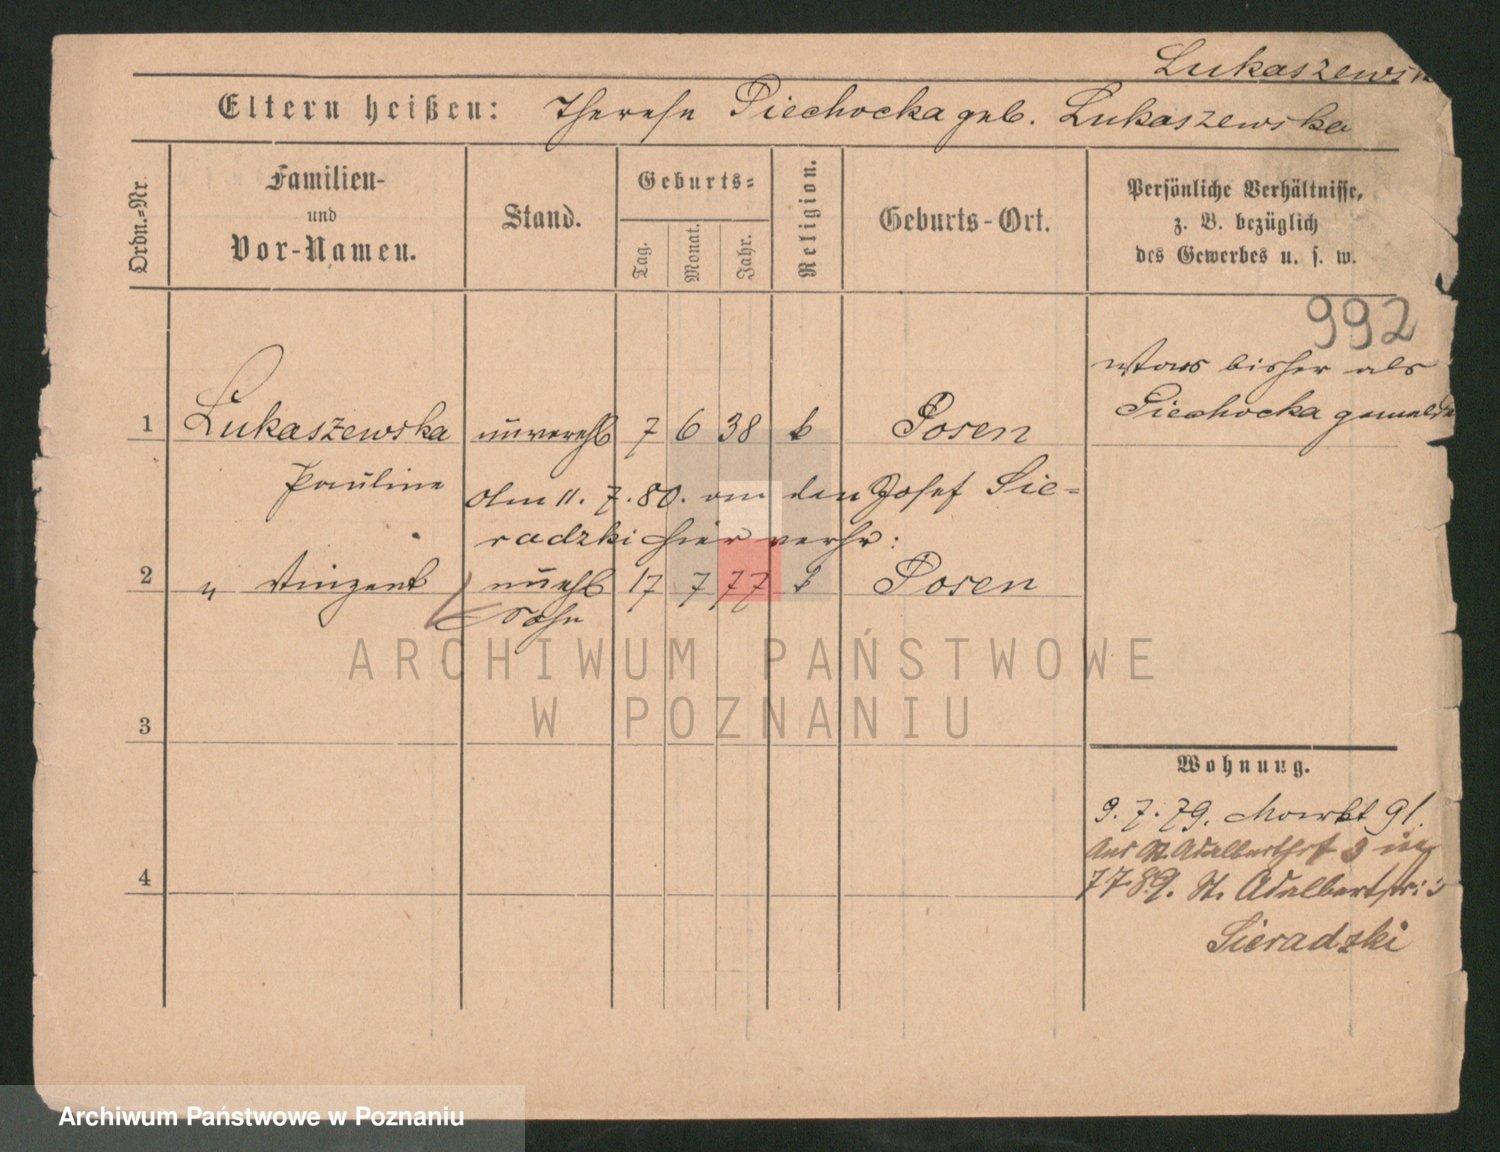 Lukaszewska
Eltern heißen: Therese Piechocka geb. Lukaszewska
Ordn.=Nr.
Familien-
und
Vor-Namen.
Stand.
Geburts=
Tag.
Monat.
Jahr.
Religion.
Geburts-Ort.
Persönliche Verhältnisse,
z. B. bezüglich
des Gewerbes u. s. w.
992
war bisher als
Piechocka gemeldet
1 Lukaszewska unverehl 7 6 38 k Posen
Pauline
Am 11. 7. 80. an den Josef Sie=
radzki hier verh:
2 " Vinzent unehl 17 7 77 k Posen
Sohn
ARCHIWUM PAŃSTWOWE
W POZNANIU
3
Wohnung.
9. 7. 79. Markt 91.
Aus St. Adalbertstr 3
4
7 7. 89. St. Adalbertstr: 3
Sieradzki
Archiwum Państwowe w Poznaniu